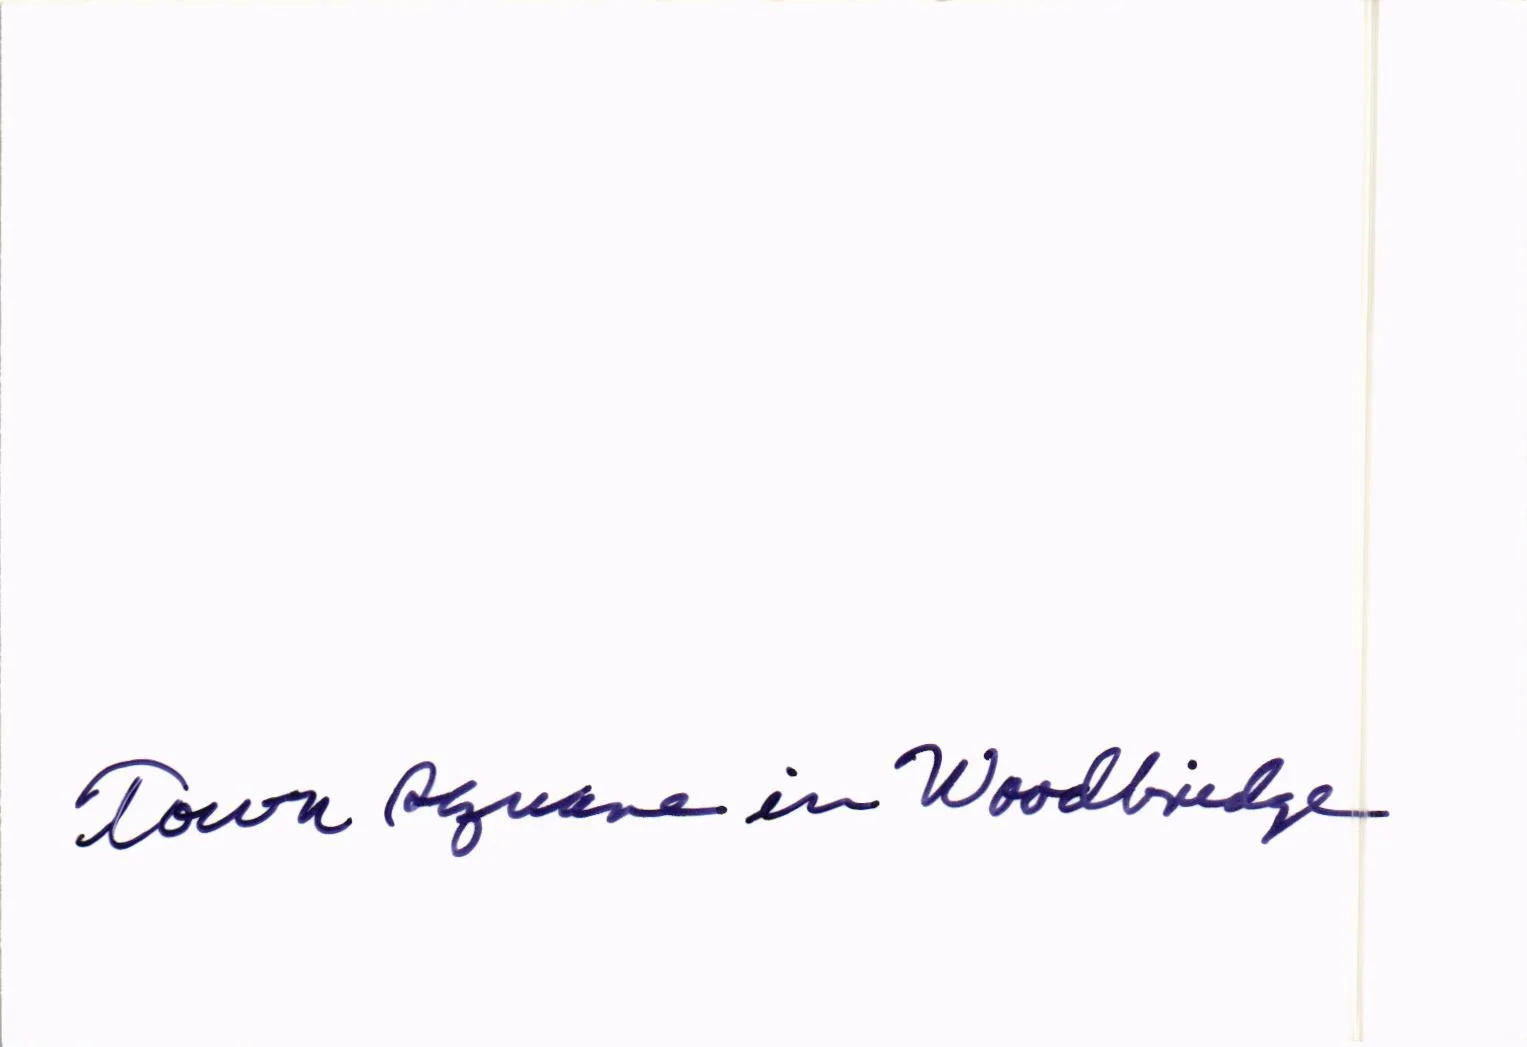 Town Square in Woodbridge